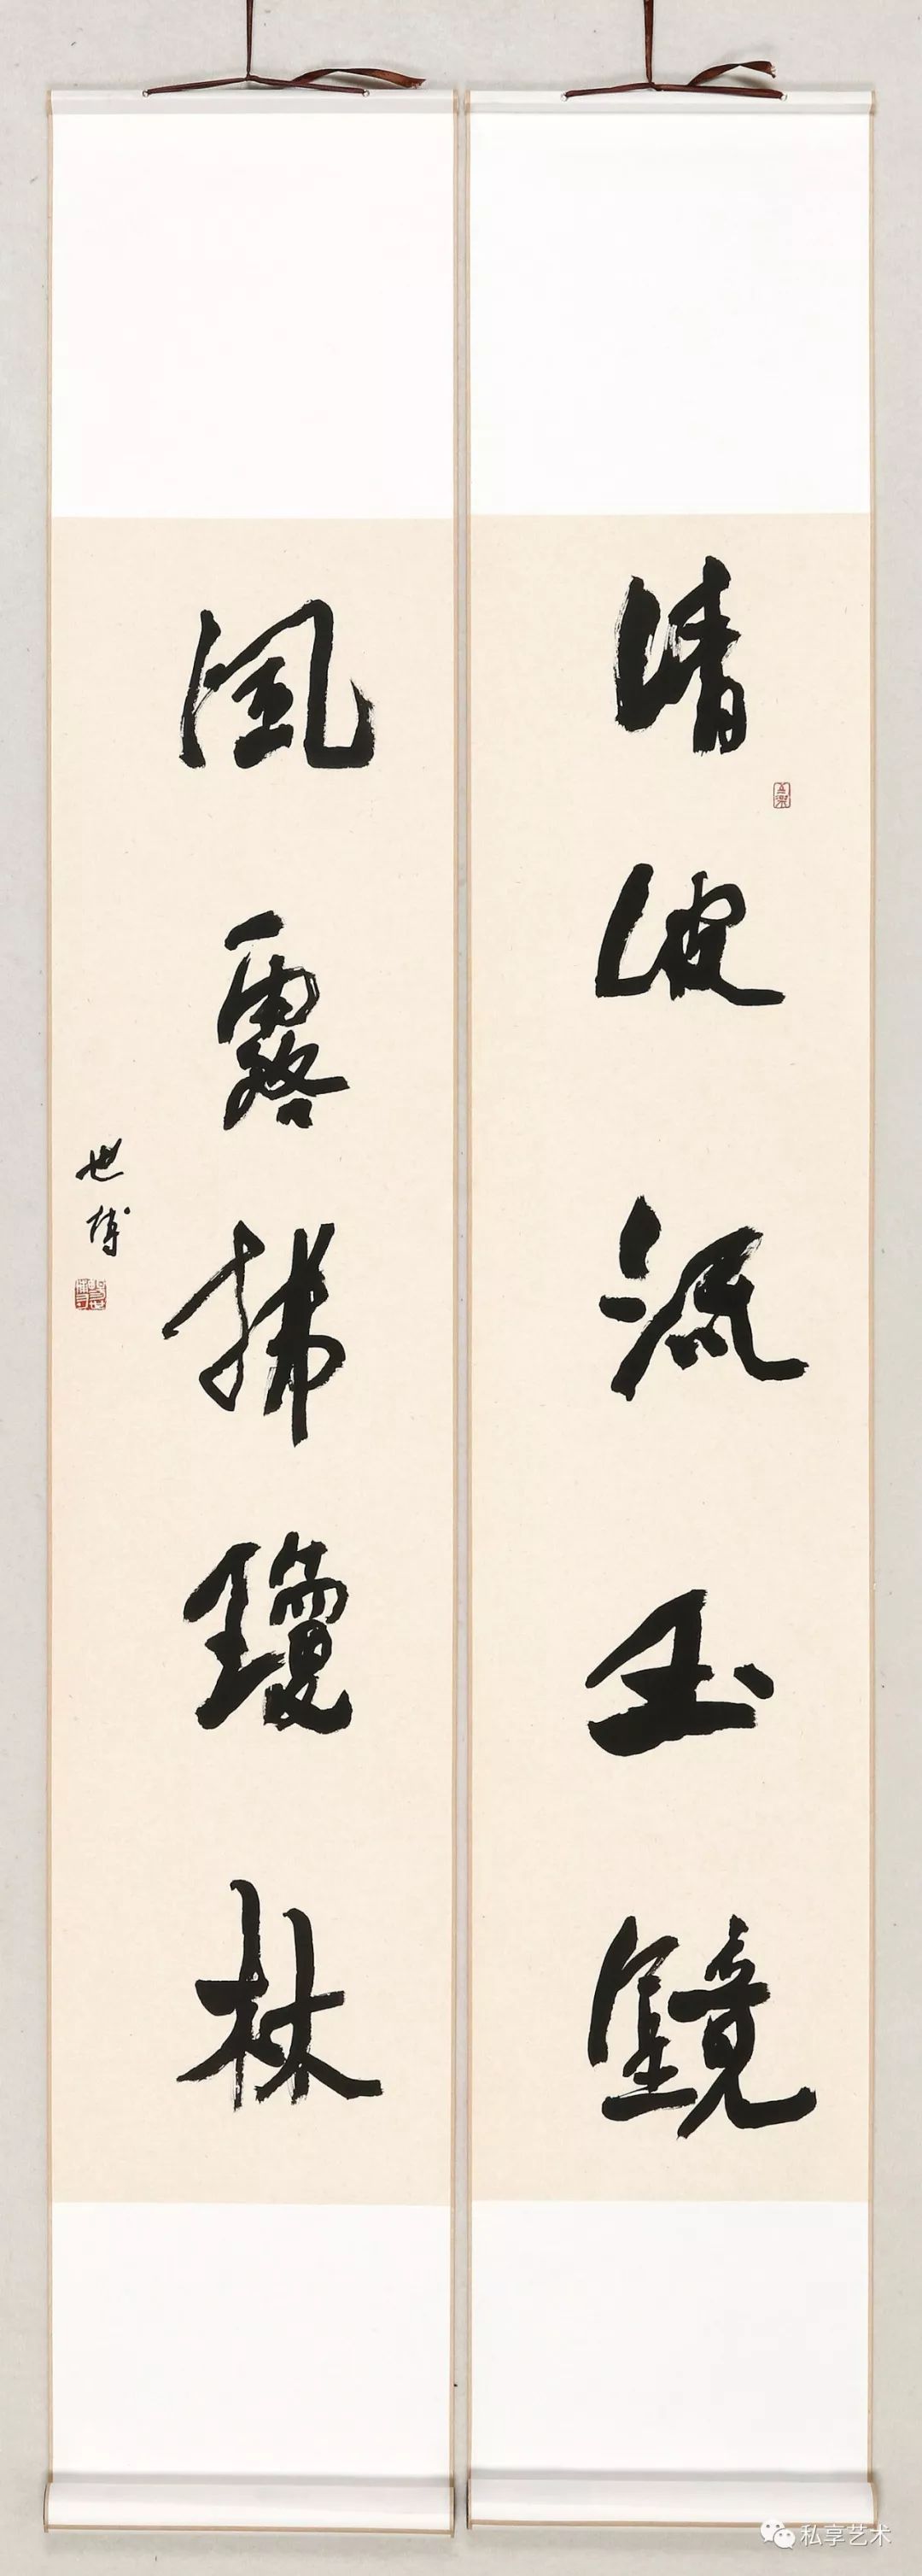 清波流玉鏡
風露拂瓊林
世博
私享艺术